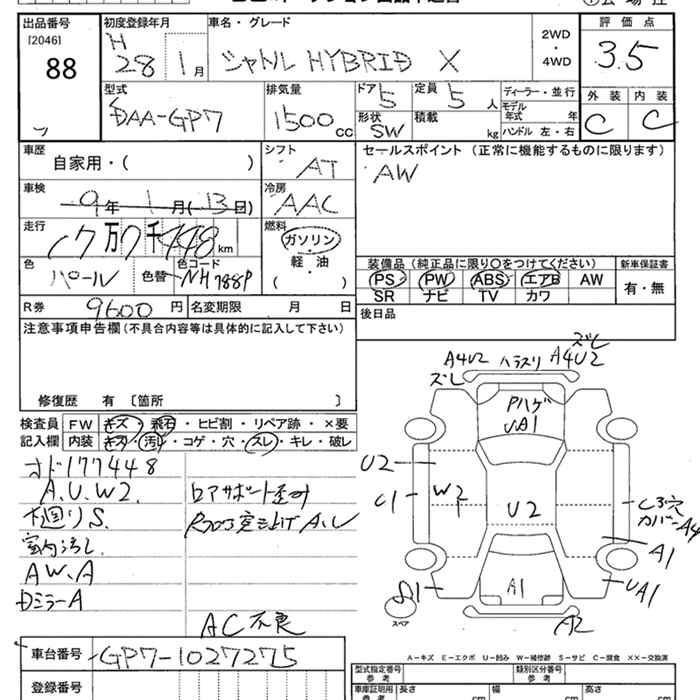 出品番号
[2046]
88
初度登録年月
H
28 1月
車名・グレード
シャトル HYBRID X
2WD
・
4WD
評価点
3.5
外装 内装
C C
型式
DAA-GP7
排気量
1500 cc
ドア 5
定員 5 人
形状 SW
積載 kg
ディーラー・並行
モデル年式 年
ハンドル 左・右
車歴
自家用・( )
シフト
AT
セールスポイント (正常に機能するものに限ります)
AW
車検
9年 1月 (13日)
冷房
AAC
走行
17万7千448km
燃料
ガソリン
・
軽・油
・
( )
色
パール
色替
色コード
NH788P
装備品 (純正品に限り〇をつけてください)
新車保証書
PS PW ABS エアB AW
SR ナビ TV カワ
有・無
R券 9600 円
名変期限 月 日
後日品
注意事項申告欄 (不具合内容等は具体的に記入して下さい)
修復歴 有 〔箇所 〕
検査員
記入欄
FW キズ・飛石・ヒビ割・リペア跡・×要
内装 キズ・汚レ・コゲ・穴・スレ・キレ・破レ
オド177448
A.U.W2.
下廻りS.
室内汚レ
AW.A
Dミラー A
AC不良
A4U2 ズレ
ハラスリ
A4U2 ズレ
Pハゲ
UA1
U2
C1
W2
U2
A1
A4
A1
UA1
A2
スペア
A-キズ E-エクボ U-凹み W-補修跡 S-サビ C-腐食 ××-交換済
車台番号
GP7-1027275
登録番号
型式指定番号
参考
類別区分番号
参考
車庫証明用
参考
長さ cm
幅 cm
高さ cm